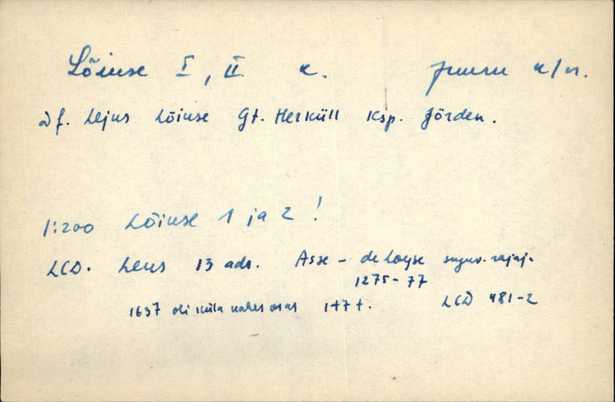 Lõiuse I, II k. Juuru k/n.
Df. Lejus Lõiuse Gt. Herküll Ksp. Jörden.
1:200 Lõiuse 1 ja 2!
LCD. Leus 13 adr. Asse – de Loyse suguv. rajaj.
1275-77
1637 oli küla kahes osas 1+7 t. LCD 481-2